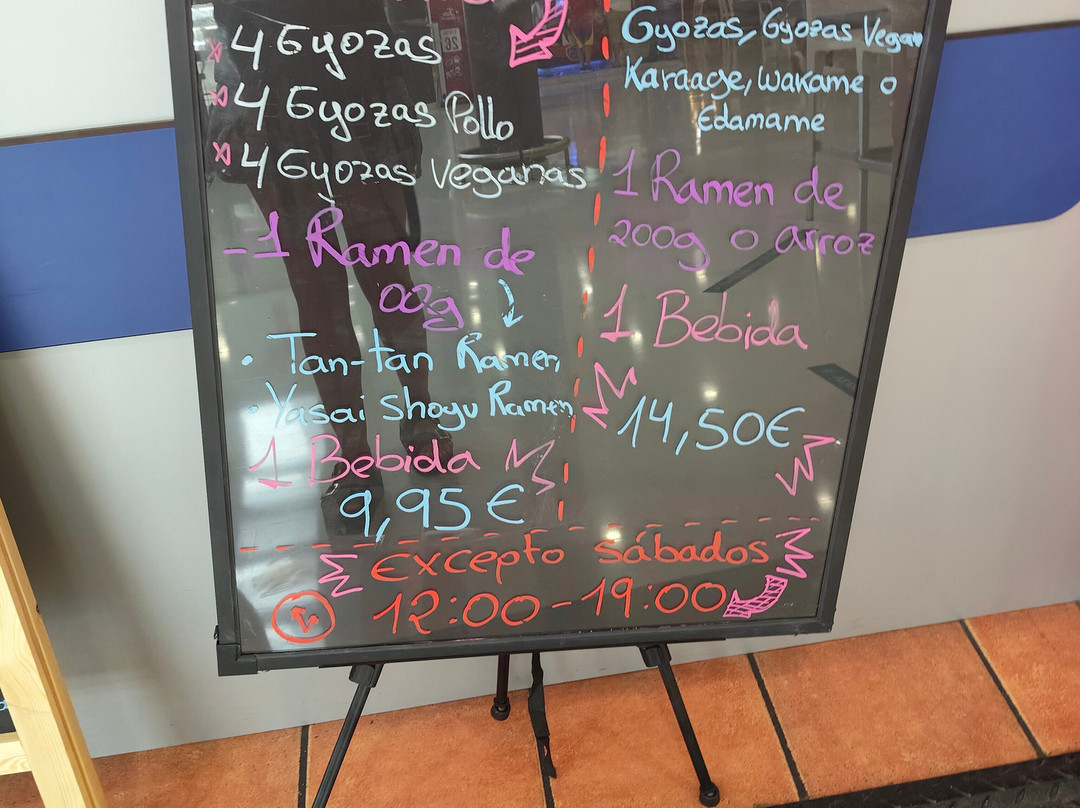 4 Gyozas
4 Gyozas Pollo
4 Gyozas Veganas
-1 Ramen de
00g
• Tan-tan Ramen
• Yasai Shoyu Ramen
1 Bebida
9,95 €
Gyozas, Gyozas Vegan
Karaage, Wakame o
Edamame
1 Ramen de
200g o arroz
1 Bebida
14,50€
Excepto sábados
12:00-19:00